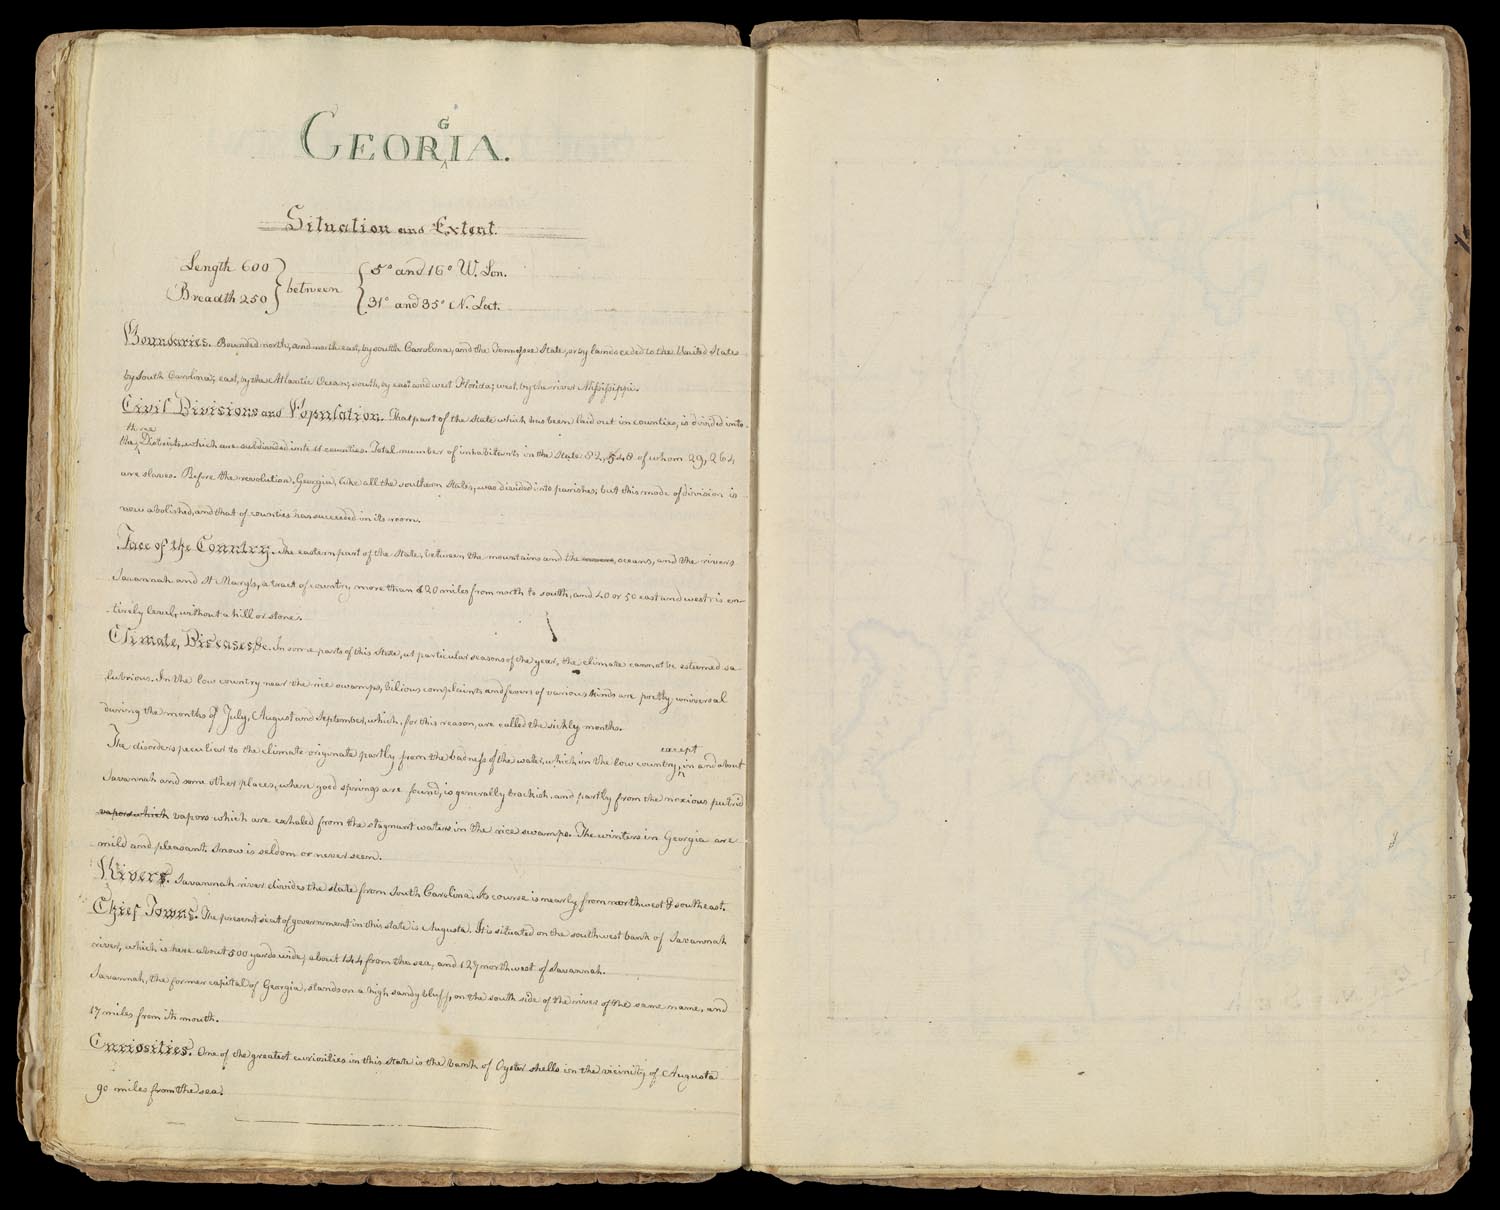 GEORGIA.
Situation and Extent.
Length 600 } between { 5° and 16° W. Lon.
Breadth 250 } { 31° and 35° N. Lat.
Boundaries. Bounded north, and north east, by south Carolina, and the Tennessee State, or by lands ceded to the United States
by South Carolina; east, by the Atlantic Ocean; south, by east and west Florida; west, by the river Missisippi.
Civil Divisions and Population. That part of the state which has been laid out in counties, is divided into
the three Districts, which are subdivided into 11 counties. Total number of inhabitants in the State 82,548 of whom 29,264
are slaves. Before the revolution, Georgia, like all the southern States, was divided into parishes; but this mode of division is
now abolished, and that of counties has succeeded in its room.
Face of the Country. The eastern part of the state, between the mountains and the oceans, and the rivers
Savannah and St Mary's, a tract of country more than 120 miles from north to south, and 40 or 50 east and west is en-
tirely level, without a hill or stone.
Climate, Diseases, &c. In some parts of this State, at particular seasons of the year, the climate cannot be esteemed sa-
lubrious. In the low country near the rice swamps, bilious complaints and fevers of various kinds are pretty universal
during the months of July, August and September, which, for this reason, are called the sickly months.
The disorders peculiar to the climate originate partly from the badness of the water, which in the low country, except in and about
Savannah and some other places, where good springs are found, is generally brackish, and partly from the noxious putrid
vapors which vapors which are exhaled from the stagnant waters in the rice swamps. The winters in Georgia are
mild and pleasant. Snow is seldom or never seen.
Rivers. Savannah river divides the state from South Carolina. Its course is nearly from northwest & southeast.
Chief Towns. The present seat of government in this state is Augusta. It is situated on the southwest bank of Savannah
river, which is here about 500 yards wide, about 144 from the sea, and 127 northwest of Savannah.
Savannah, the former capital of Georgia, stands on a high sandy bluff, on the south side of the river of the same name, and
17 miles from its mouth.
Curiosities. One of the greatest curiosities in this state is the bank of Oyster shells in the vicinity of Augusta
90 miles from the sea.